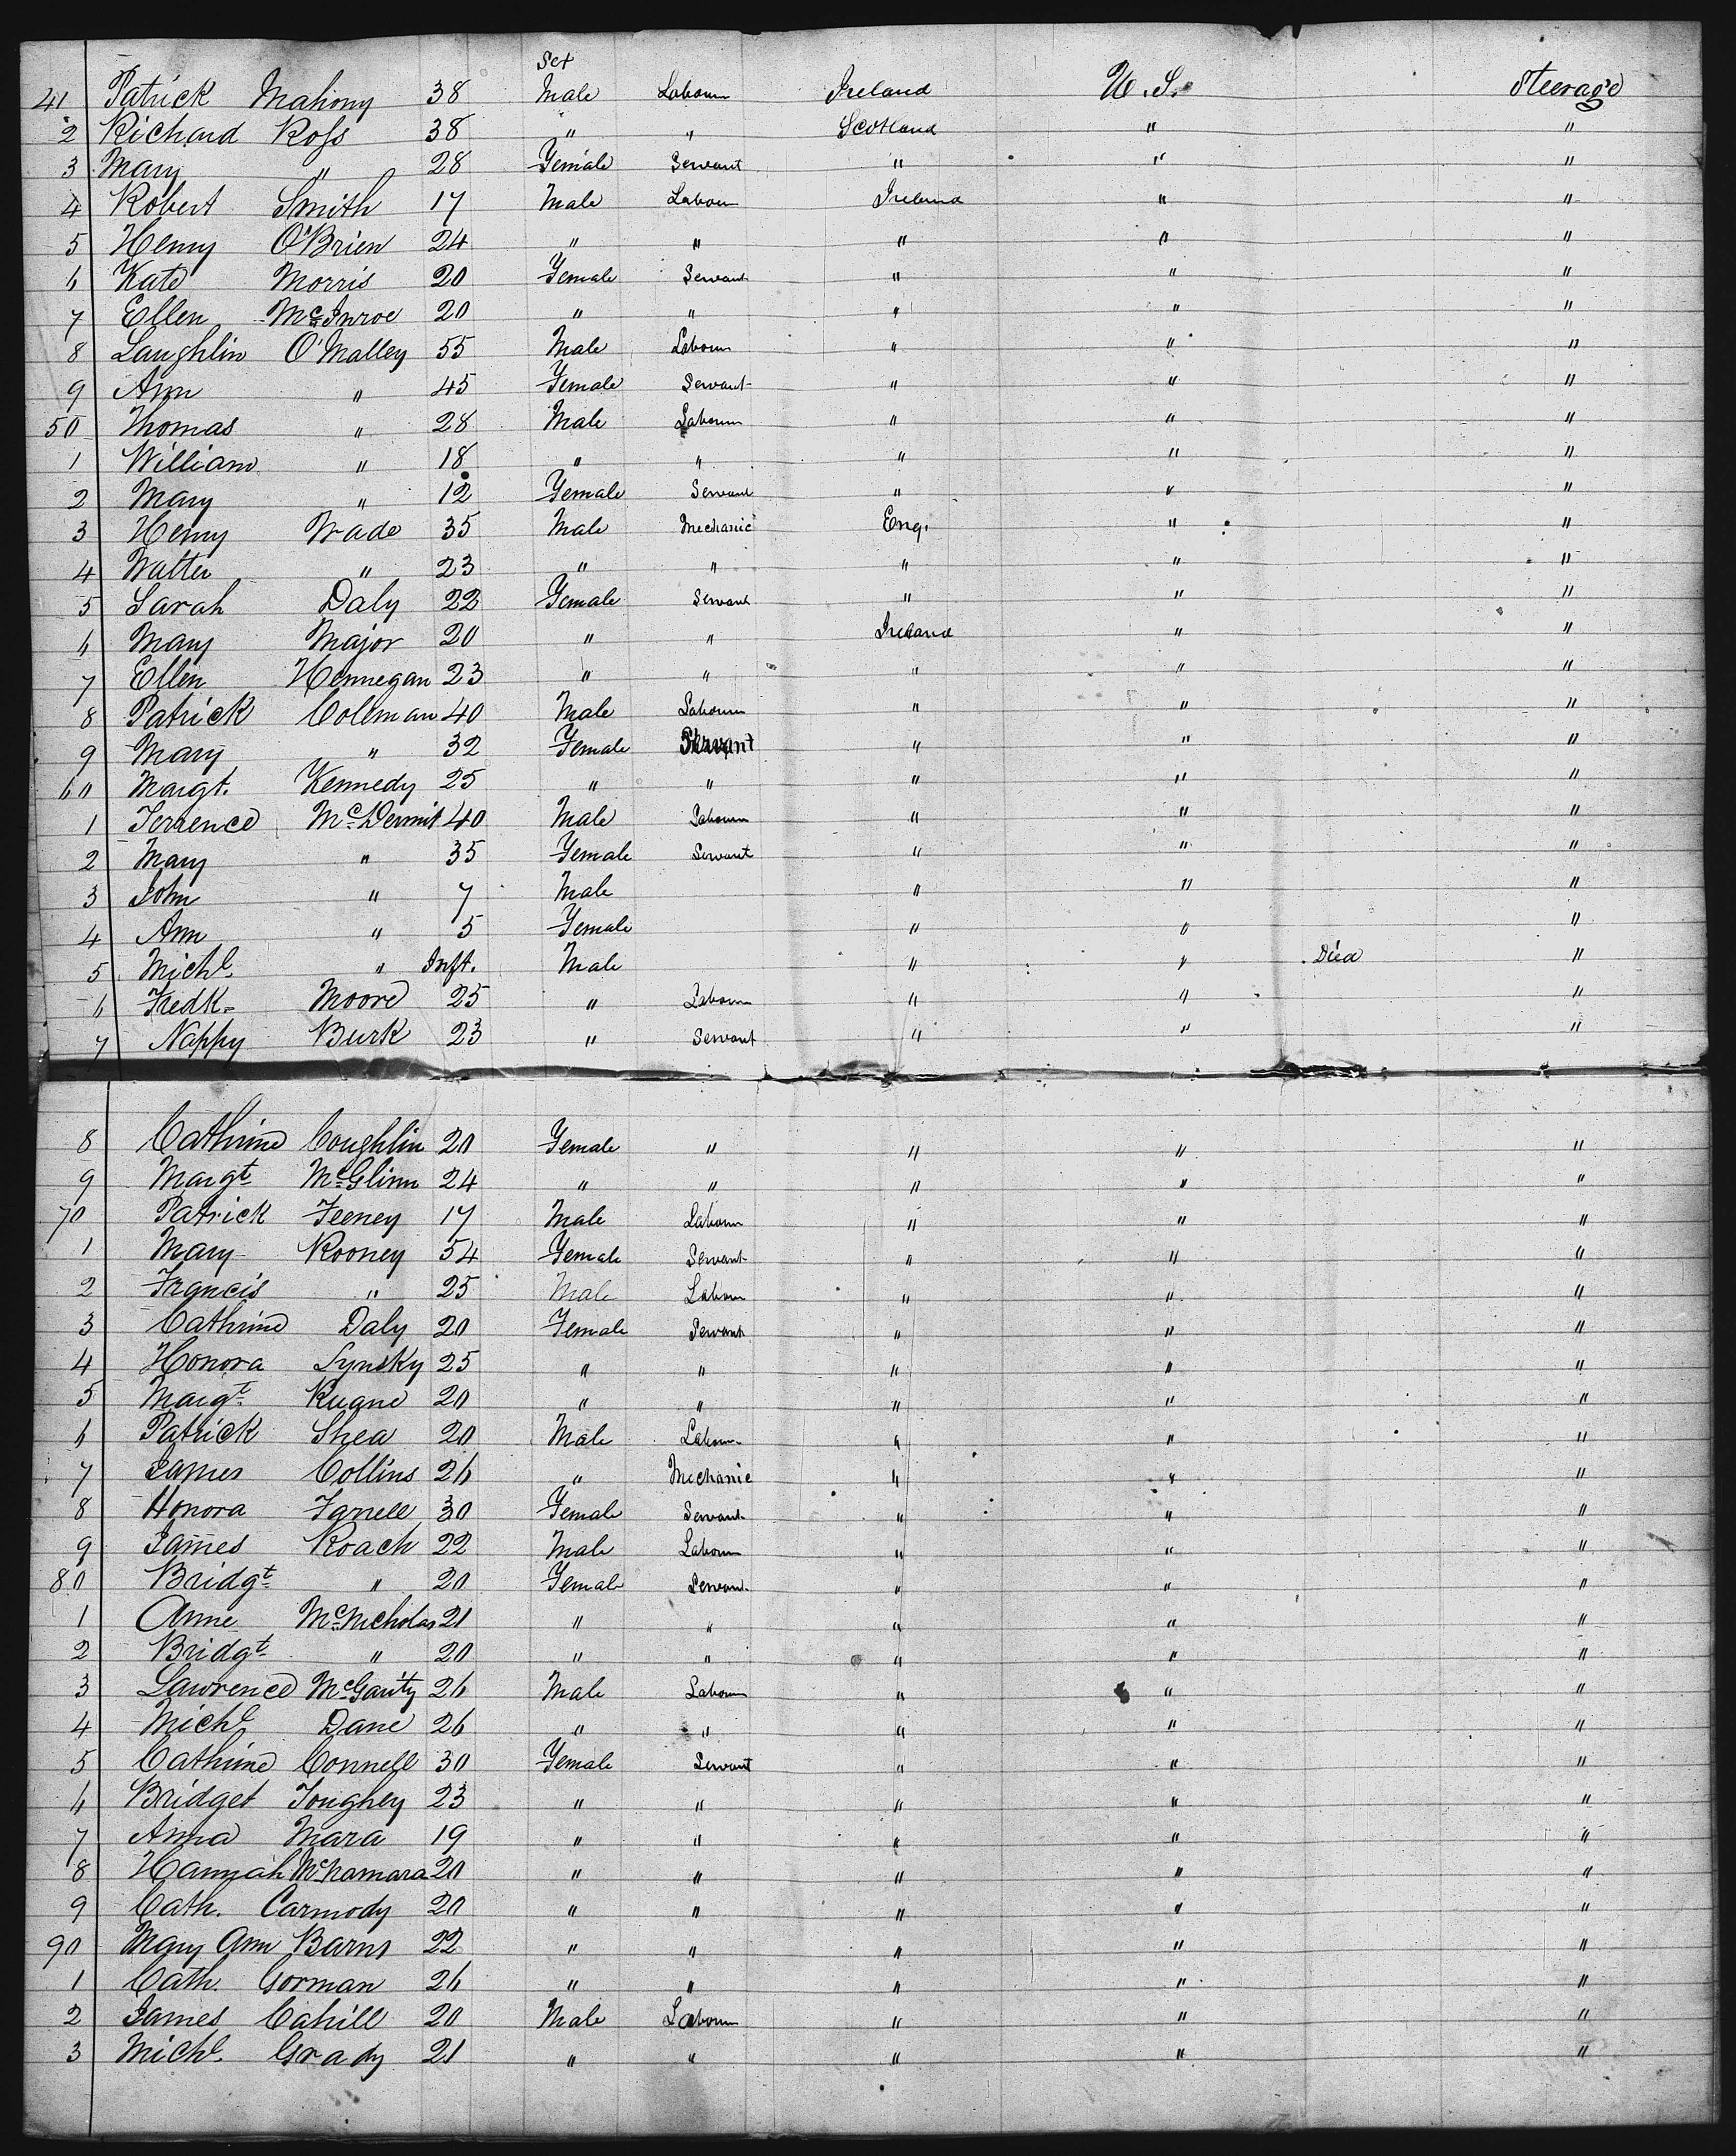 Sex
41 Patrick Mahony 38 Male Labourer Ireland U.S. Steerage
2 Richard Ross 38 " " Scotland " "
3 Mary " 28 Female Servant " " "
4 Robert Smith 17 Male Labour Ireland " "
5 Henry O'Brien 24 " " " " "
6 Kate Morris 20 Female Servant " " "
7 Ellen McInroe 20 " " " " "
8 Laughlin O'Malley 55 Male Labourer " " "
9 Ann " 45 Female Servant " " "
50 Thomas " 28 Male Labourer " " "
1 William " 18 " " " " "
2 Mary " 12 Female Servant " " "
3 Henry Wade 35 Male Mechanic Eng. " "
4 Walter " 23 " " " " "
5 Sarah Daly 22 Female Servant " " "
6 Mary Major 20 " " Ireland " "
7 Ellen Hennegan 23 " " " " "
8 Patrick Coleman 40 Male Labourer " " "
9 Mary " 32 Female Servant " " "
60 Margt. Kennedy 25 " " " " "
1 Terrence McDermit 40 Male Labourer " " "
2 Mary " 35 Female Servant " " "
3 John " 7 Male " " "
4 Ann " 5 Female " " "
5 Michl. " Inft. Male " " Died "
6 Fredk. Moore 25 " Labourer " " "
7 Nappy Burk 23 " Servant " " "
8 Cathrine Coughlin 20 Female " " " "
9 Margt McGlinn 24 " " " " "
70 Patrick Feeney 17 Male Labourer " " "
1 Mary Rooney 54 Female Servant " " "
2 Francis " 25 Male Labour " " "
3 Cathrine Daly 20 Female Servant " " "
4 Honora Lynsky 25 " " " " "
5 Margt Ruane 20 " " " " "
6 Patrick Shea 20 Male Labour " " "
7 James Collins 26 " Mechanic " " "
8 Honora Farrell 30 Female Servant " " "
9 James Roach 22 Male Labourer " " "
80 Bridgt " 20 Female Servant " " "
1 Anne McNicholas 21 " " " " "
2 Bridgt " 20 " " " " "
3 Lawrence McGarity 26 Male Labourer " " "
4 Michl Dane 26 " " " " "
5 Cathrine Connell 30 Female Servant " " "
6 Bridget Toughey 23 " " " " "
7 Anna Mara 19 " " " " "
8 Hannah McNamara 20 " " " " "
9 Cath. Carmody 20 " " " " "
90 Mary Ann Barns 22 " " " " "
1 Cath. Gorman 26 " " " " "
2 James Cahill 20 Male Labourer " " "
3 Michl. Grady 21 " " " " "